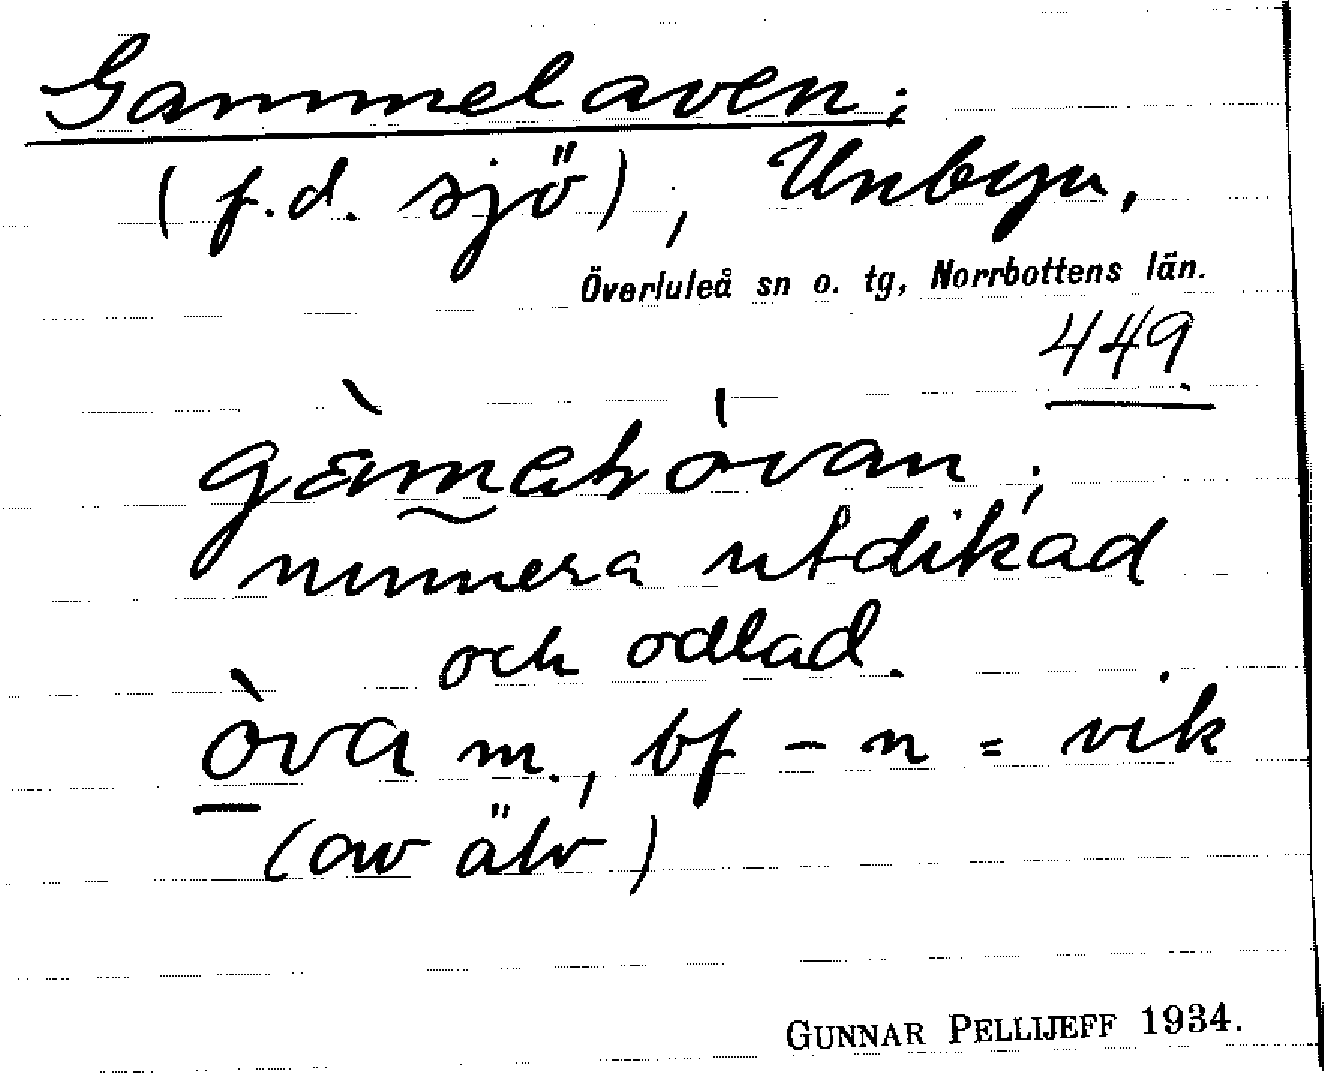 Gammelaven;
(f.d. sjö), Unbyn,
Överluleå sn o. tg, Norrbottens län.
449
numera utdikad
och odlad.
òva m., bf - n = vik
(av älv)
GUNNAR PELLIJEFF 1934.